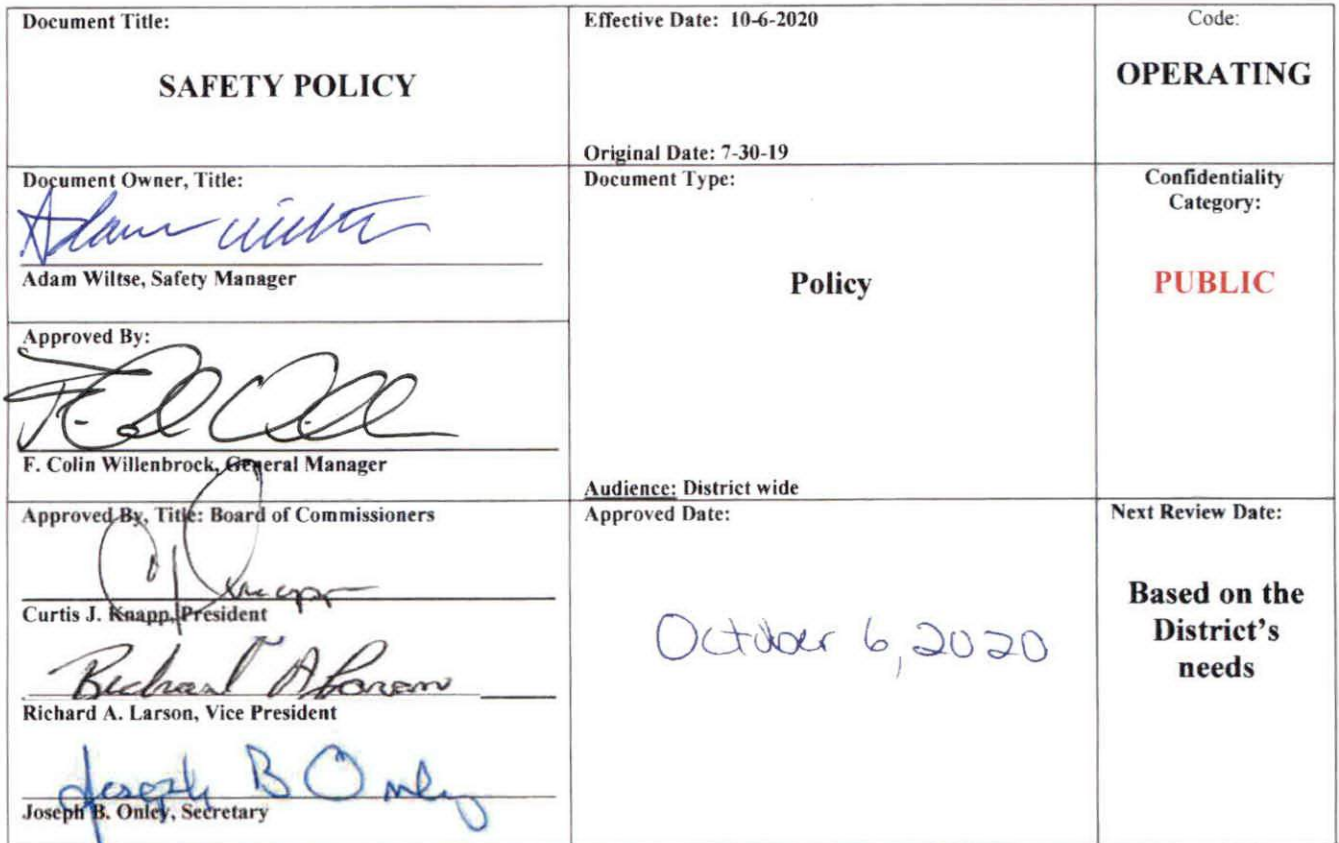 Document Title:
SAFETY POLICY
Effective Date: 10-6-2020
Original Date: 7-30-19
Code:
OPERATING
Document Owner, Title:
Adam Wiltse
Adam Wiltse, Safety Manager
Document Type:
Policy
Audience: District wide
Confidentiality
Category:
PUBLIC
Approved By:
F. Colin Willenbrock, General Manager
Approved By, Title: Board of Commissioners
Knapp
Curtis J. Knapp, President
Richard A Larson
Richard A. Larson, Vice President
Joseph B Onley
Joseph B. Onley, Secretary
Approved Date:
October 6, 2020
Next Review Date:
Based on the
District's
needs